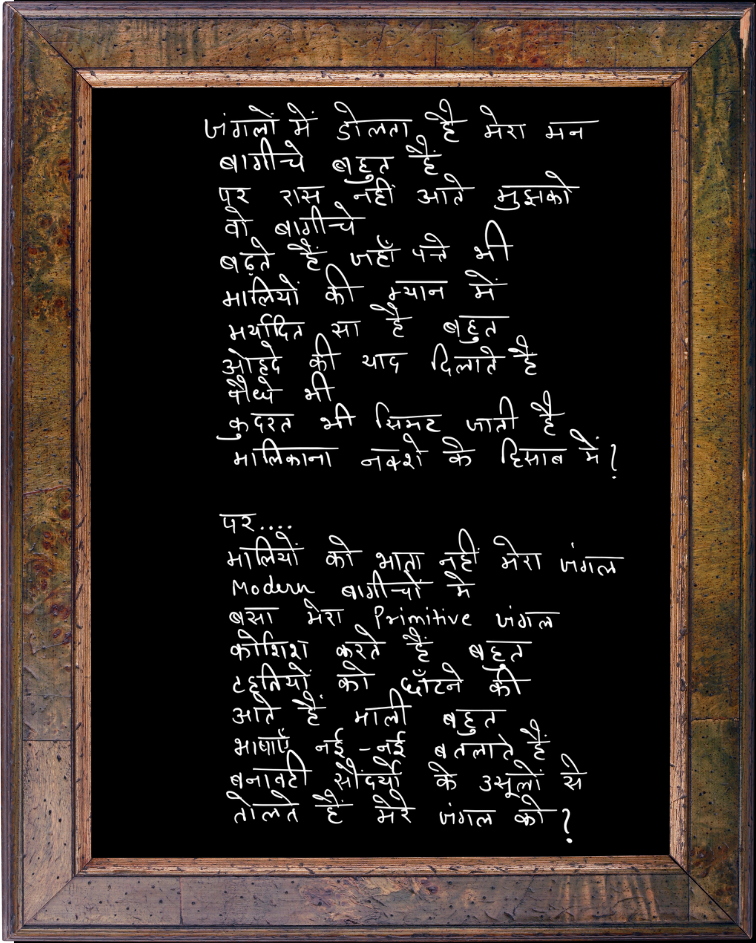 जंगलों में डोलता है मेरा मन
बागीचे बहुत हैं
पर रास नहीं आते मुझको
वो बागीचे
बढ़ते हैं जहाँ पत्ते भी
मालियों की म्यान में
मर्यादित सा है बहुत
ओहदे की याद दिलाते है
पौधे भी
कुदरत भी सिमट जाती है
मालिकाना नक्शे के हिसाब में?
पर....
मालियों को भाता नहीं मेरा जंगल
Modern बागीचों में
बसा मेरा Primitive जंगल
कोशिश करते हैं बहुत
टहनियों को छाँटने की
आते हैं माली बहुत
भाषाएँ नई-नई बतलाते हैं
बनावटी सौंदर्यो के उसूलों से
तोलते हैं मेरे जंगल को?